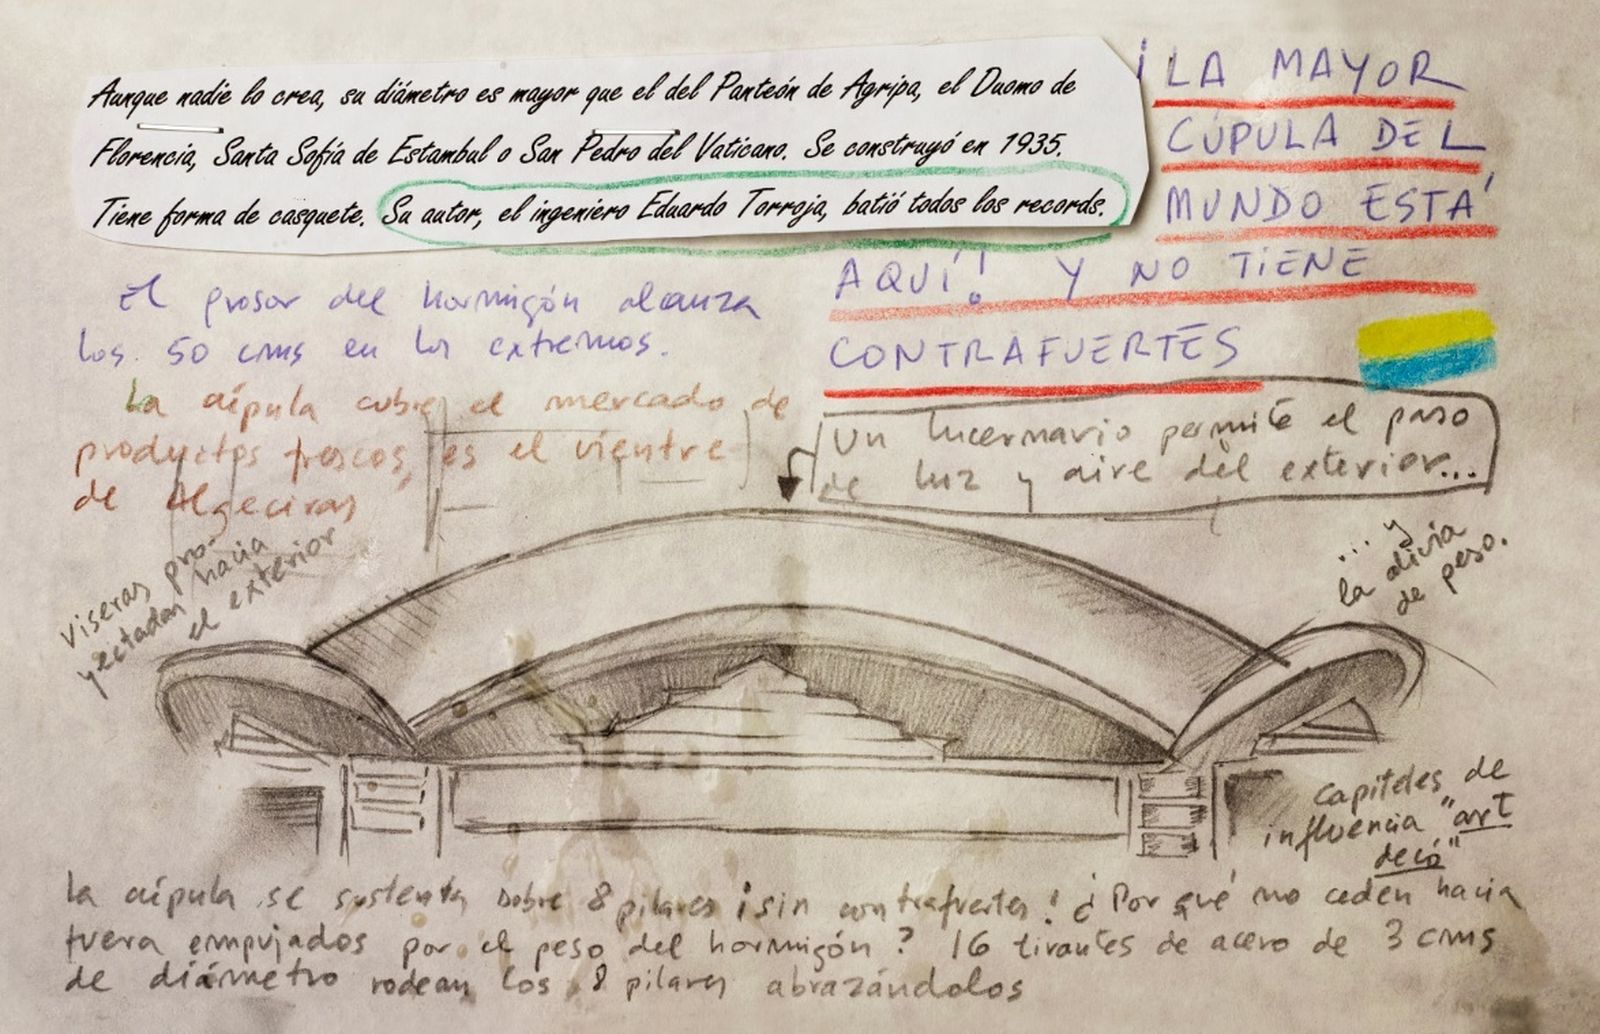 Aunque nadie lo crea, su diámetro es mayor que el del Panteón de Agripa, el Duomo de
Florencia, Santa Sofía de Estambul o San Pedro del Vaticano. Se construyó en 1935.
Tiene forma de casquete. Su autor, el ingeniero Eduardo Torroja, batió todos los records.
¡LA MAYOR
CÚPULA DEL
MUNDO ESTÁ
AQUÍ! Y NO TIENE
CONTRAFUERTES
El grosor del hormigón alcanza
los 50 cms en los extremos.
La cúpula cubre el mercado de
productos frescos, es el vientre
de Algeciras
Un lucernario permite el paso
de luz y aire del exterior...
... y
la alivia
de peso.
Viseras pro-
yectadas hacia
el exterior
Capiteles de
influencia "art
decó"
La cúpula se sustenta sobre 8 pilares ¡sin contrafuertes! ¿Por qué no ceden hacia
fuera empujados por el peso del hormigón? 16 tirantes de acero de 3 cms
de diámetro rodean los 8 pilares abrazándolos